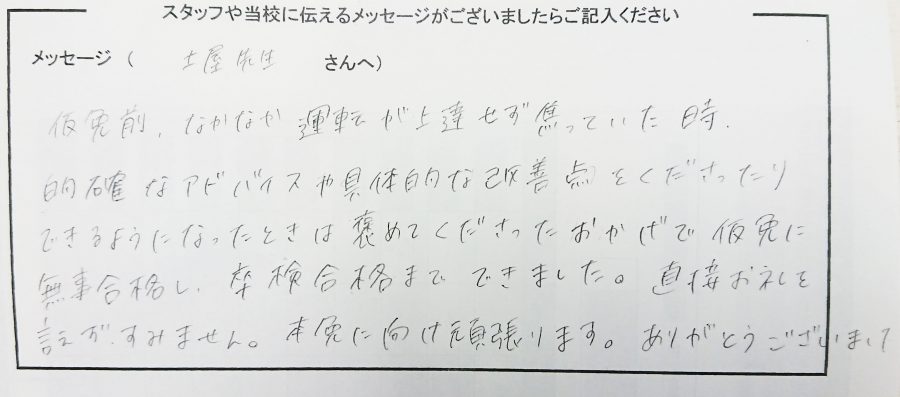 スタッフや当校に伝えるメッセージがございましたらご記入ください
メッセージ（ 土屋先生 さんへ）
仮免前、なかなか運転が上達せず焦っていた時、
的確なアドバイスや具体的な改善点をくださったり
できるようになったときは褒めてくださったおかげで仮免に
無事合格し、卒検合格までできました。直接お礼を
言えず、すみません。本免に向け頑張ります。ありがとうございまし